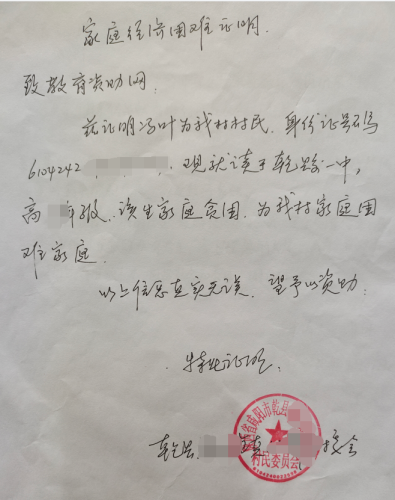 家庭经济困难证明.
致教育资助网:
兹证明冯叶为我村村民, 身份证号码
6104242 , 现就读于乾县一中,
高 年级, 该生家庭贫困, 为我村家庭困
难家庭.
以上信息真实无误, 望予以资助.
特此证明.
省咸阳市乾县
村民委员会
乾县